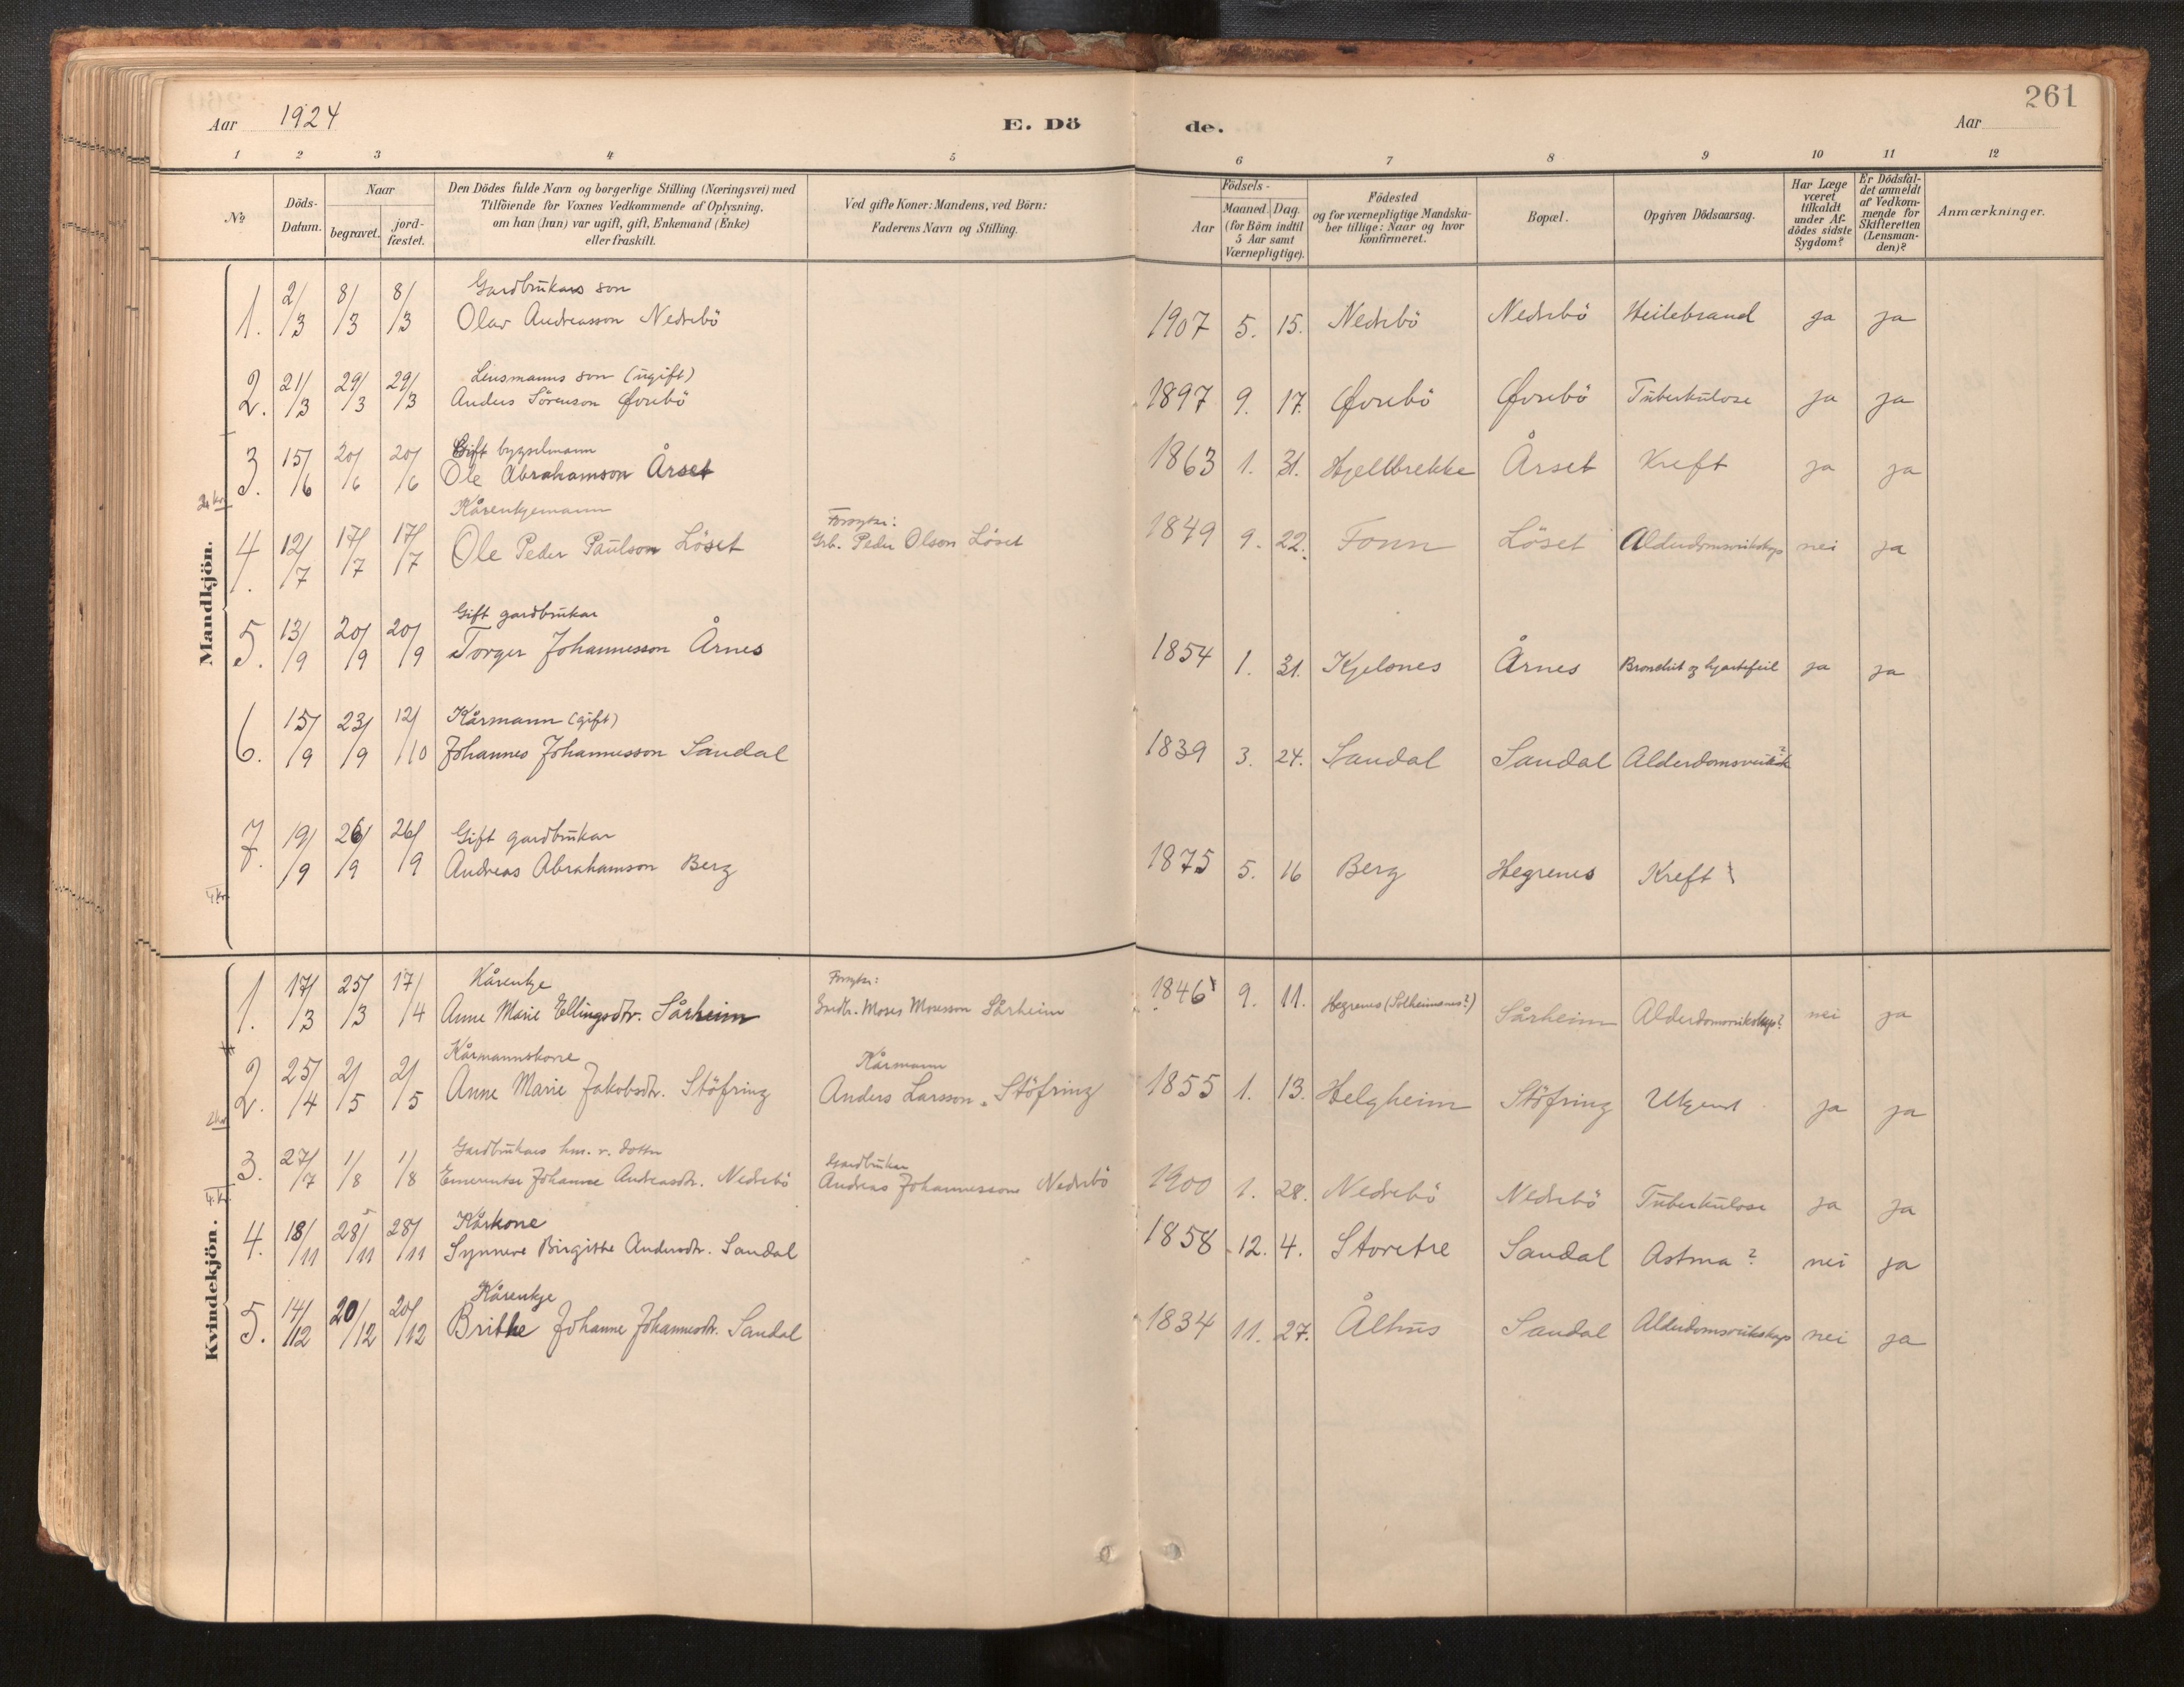 261
Aar 1924
E. Dö
de.
Aar
1 2 3 4 5 6 7 8 9 10 11 12
No
Döds-
Datum.
Naar
begravet.
jord-
fæstet.
Den Dödes fulde Navn og borgerlige Stilling (Næringsvei) med
Tilföiende for Voxnes Vedkommende af Oplysning,
om han (hun) var ugift, gift, Enkemand (Enke)
eller fraskilt.
Ved gifte Koner: Mandens, ved Börn:
Faderens Navn og Stilling.
Födsels-
Aar
Maaned. Dag.
(for Börn indtil
5 Aar samt
Værnepligtige).
Födested
og for værnepligtige Mandska-
ber tillige: Naar og hvor
konfirmeret.
Bopæl.
Opgiven Dödsaarsag.
Har Læge
været
tilkaldt
under Af-
dödes sidste
Sygdom?
Er Dödsfal-
det anmeldt
af Vedkom-
mende for
Skifteretten
(Lensman-
den)?
Anmærkninger.
Mandkjön.
Gardbrukars son
1. 2/3 8/3 8/3 Olav Andreasson Nedrebö 1907 5. 15. Nedrebö Nedrebö Heilebrand ja ja
Lensmanns son (ugift)
2. 21/3 29/3 29/3 Anders Sörenson Øvrebö 1897 9. 17. Øvrebö Øvrebö Tuberkulose ja ja
Gift bygselmann
3. 15/6 20/6 20/6 Ole Abrahamson Årset 1863 1. 31. Hjeltbrekke Årset Kreft ja ja
Kårenkjemann Forsytar:
4. 12/7 17/7 17/7 Ole Peder Paulson Löset Grb. Peder Olson Löset 1849 9. 22. Fonn Löset Alderdomsveikskap nei ja
Gift gardbrukar
5. 13/9 20/9 20/9 Torger Johannesson Årnes 1854 1. 31. Kjelsnes Årnes Bronchit og hjartefeil ja ja
Kårmann (gift)
6. 15/9 23/9 12/10 Johannes Johannesson Sandal 1839 3. 24. Sandal Sandal
Gift gardbrukar
7. 19/9 26/9 26/9 Andreas Abrahamson Berg 1875 5. 16 Berg Hegrenes Kreft
4 kr.
Kvindekjön.
Kårenkje Forsytar:
1. 17/3 25/3 17/4 Anne Marie Ellingsdtr. Sårheim Moses Mosesson Sårheim 1846 9. 11. Hegrenes (Solheimsnes?) Sårheim Alderdomsveikskap? nei ja
Kårmannskone Kårmann
2. 25/4 2/5 2/5 Anne Marie Jakobsdtr. Stöfring Anders Larsson Stöfring 1855 1. 13. Helgheim Stöfring Ukjent ja ja
2 kr.
Gardbrukars hm. v. dotter Gardbrukar
3. 27/7 1/8 1/8 Emerentse Johanne Andreasdtr. Nedrebö Andreas Johannesson Nedrebö 1900 1. 28. Nedrebö Nedrebö Tuberkulose ja ja
4. kr.
Kårkone
4. 18/11 28/11 28/11 Synneve Birgitte Andersdtr. Sandal 1858 12. 4. Storetre Sandal Astma? nei ja
Kårenkje
5. 14/12 20/12 20/12 Brithe Johanne Johannesdtr. Sandal 1834 11. 27. Ålhus Sandal Alderdomsveikskap nei ja